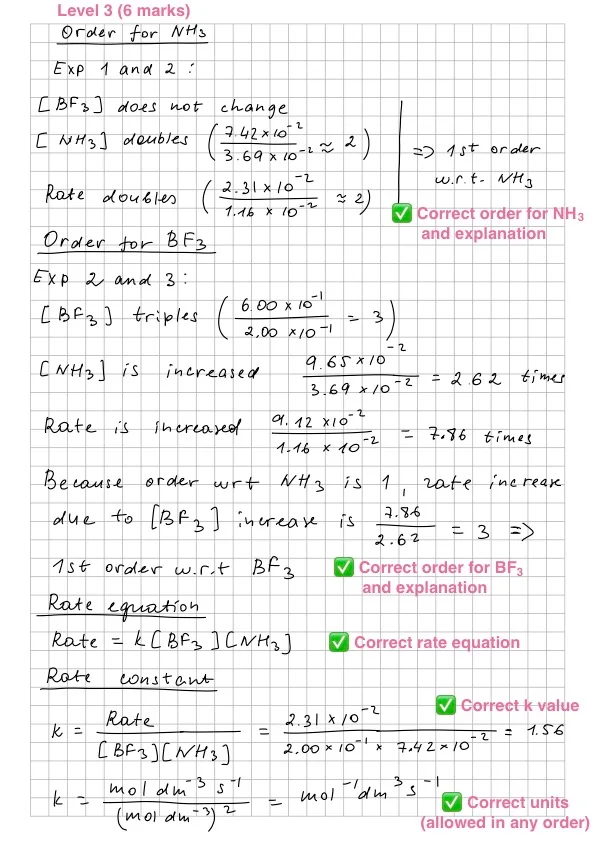 Level 3 (6 marks)
Order for NH₃
Exp 1 and 2 :
[BF₃] does not change
[NH₃] doubles (7.42 × 10⁻² / 3.69 × 10⁻² ≈ 2)
=> 1st order
w.r.t. NH₃
Rate doubles (2.31 × 10⁻² / 1.16 × 10⁻² ≈ 2)
✅ Correct order for NH₃
and explanation
Order for BF₃
Exp 2 and 3 :
[BF₃] triples (6.00 × 10⁻¹ / 2,00 × 10⁻¹ = 3)
[NH₃] is increased 9.65 × 10⁻² / 3.69 × 10⁻² = 2.62 times
Rate is increased 9.12 × 10⁻² / 1.16 × 10⁻² = 7.86 times
Because order wrt NH₃ is 1, rate increase
due to [BF₃] increase is 7.86 / 2.62 = 3 =>
1st order w.r.t BF₃
✅ Correct order for BF₃
and explanation
Rate equation
Rate = k[BF₃][NH₃]
✅ Correct rate equation
Rate constant
✅ Correct k value
k = Rate / [BF₃][NH₃] = 2.31 × 10⁻² / 2.00 × 10⁻¹ × 7.42 × 10⁻² = 1.56
k = mol dm⁻³ s⁻¹ / (mol dm⁻³)² = mol⁻¹ dm³ s⁻¹
✅ Correct units
(allowed in any order)